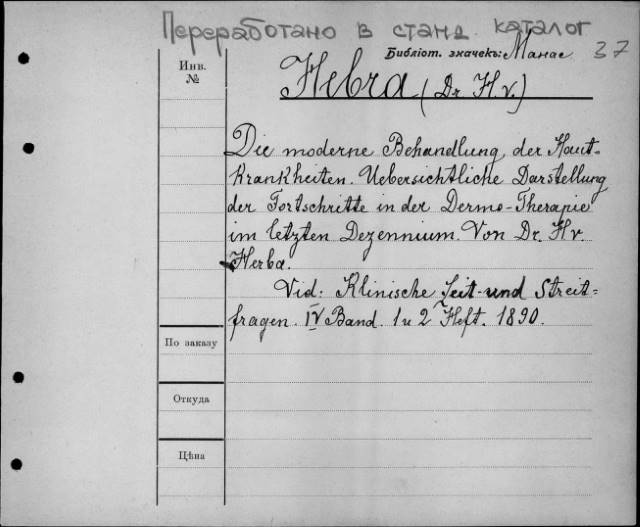 Переработано в станд. каталог
Библіот. значекъ: Манас 37
Инв. №
Hebra (Dr. H. v.)
Die moderne Behandlung der Haut-
krankheiten. Uebersichtliche Darstellung
der Fortschritte in der Dermo-Therapie
im letzten Dezennium. Von Dr. H v.
Herba.
Vid: Klinische Zeit- und Streit=
fragen. IV Band. 1 u 2 Heft. 1890.
По заказу
Откуда
Цѣна